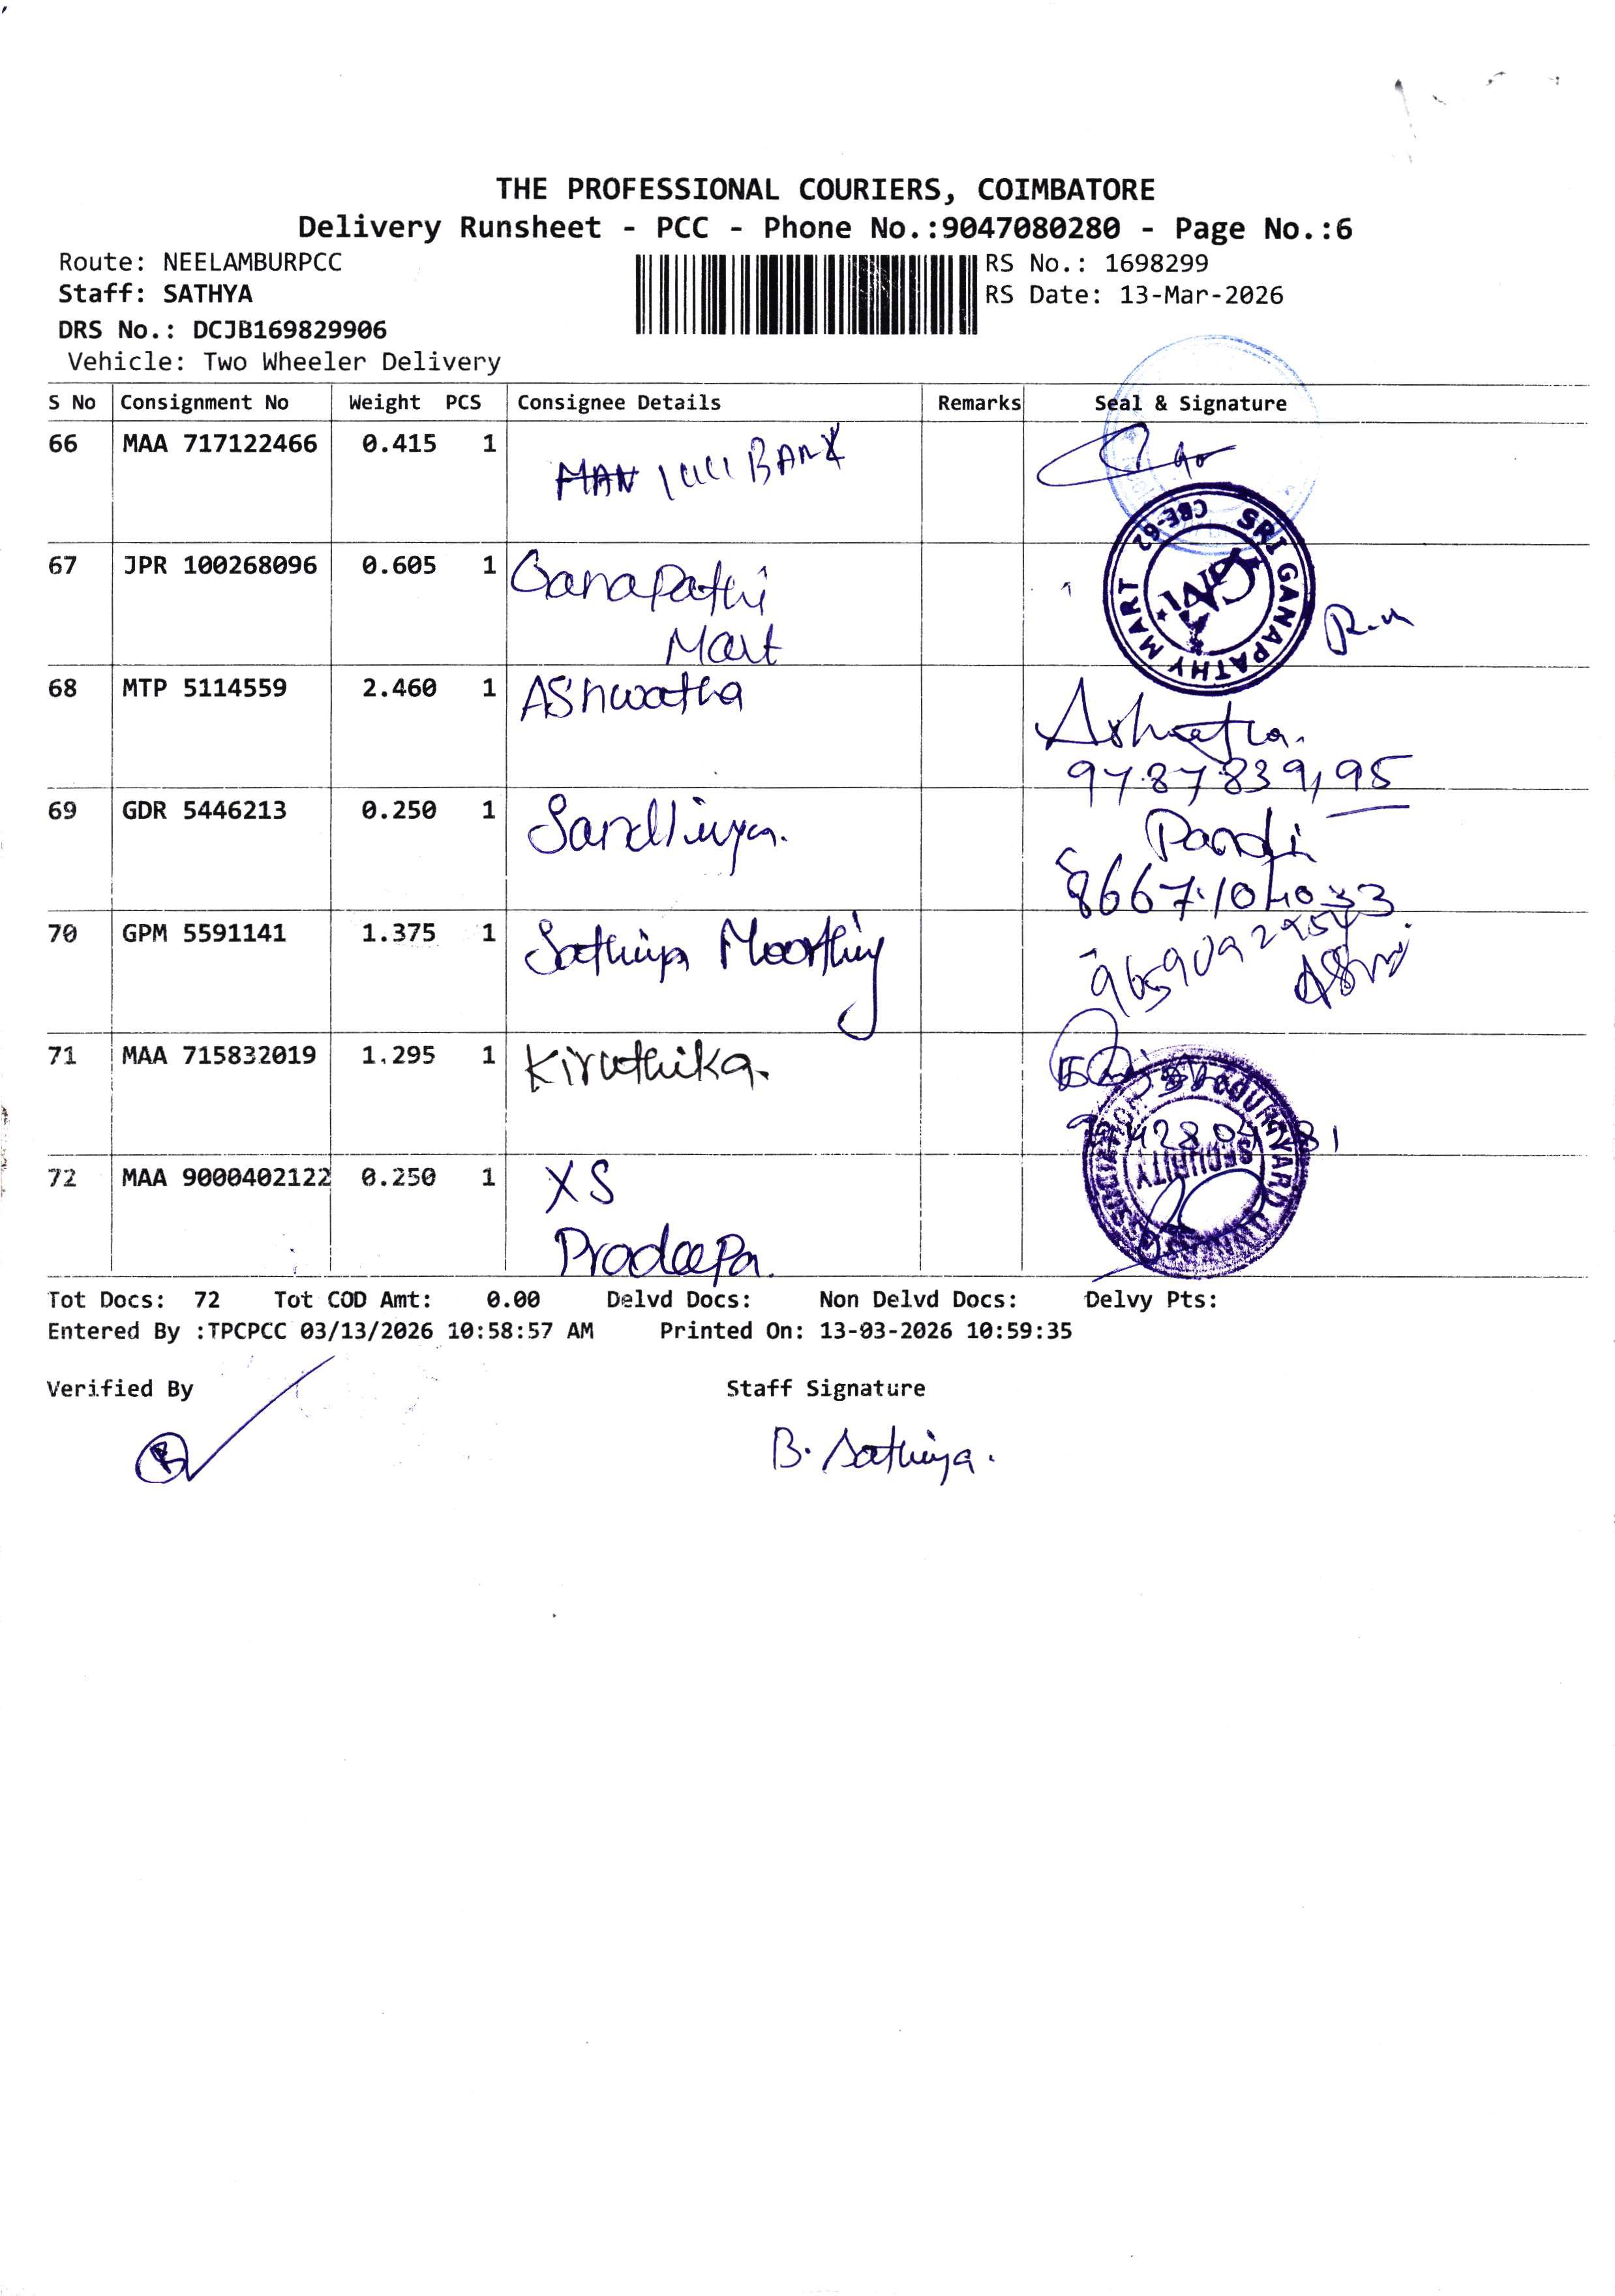 THE PROFESSIONAL COURIERS, COIMBATORE
Delivery Runsheet - PCC - Phone No.:9047080280 - Page No.:6
Route: NEELAMBURPCC
RS No.: 1698299
Staff: SATHYA
RS Date: 13-Mar-2026
DRS No.: DCJB169829906
Vehicle: Two Wheeler Delivery
S No Consignment No Weight PCS Consignee Details Remarks Seal & Signature
66 MAA 717122466 0.415 1 BANK
67 JPR 100268096 0.605 1 Ganapathi
Mart
SRI GANAPATHY MART CBE-62
68 MTP 5114559 2.460 1 Ashwatha
Ashwatha.
69 GDR 5446213 0.250 1 Sandhiya.
Pandi
70 GPM 5591141 1.375 1 Sathiya Moorthiy
71 MAA 715832019 1.295 1 Kiruthika.
72 MAA 9000402122 0.250 1 XS
Pradeepa.
SECURITY
Tot Docs: 72 Tot COD Amt: 0.00 Delvd Docs: Non Delvd Docs: Delvy Pts:
Entered By :TPCPCC 03/13/2026 10:58:57 AM Printed On: 13-03-2026 10:59:35
Verified By Staff Signature
B. Sathiya.